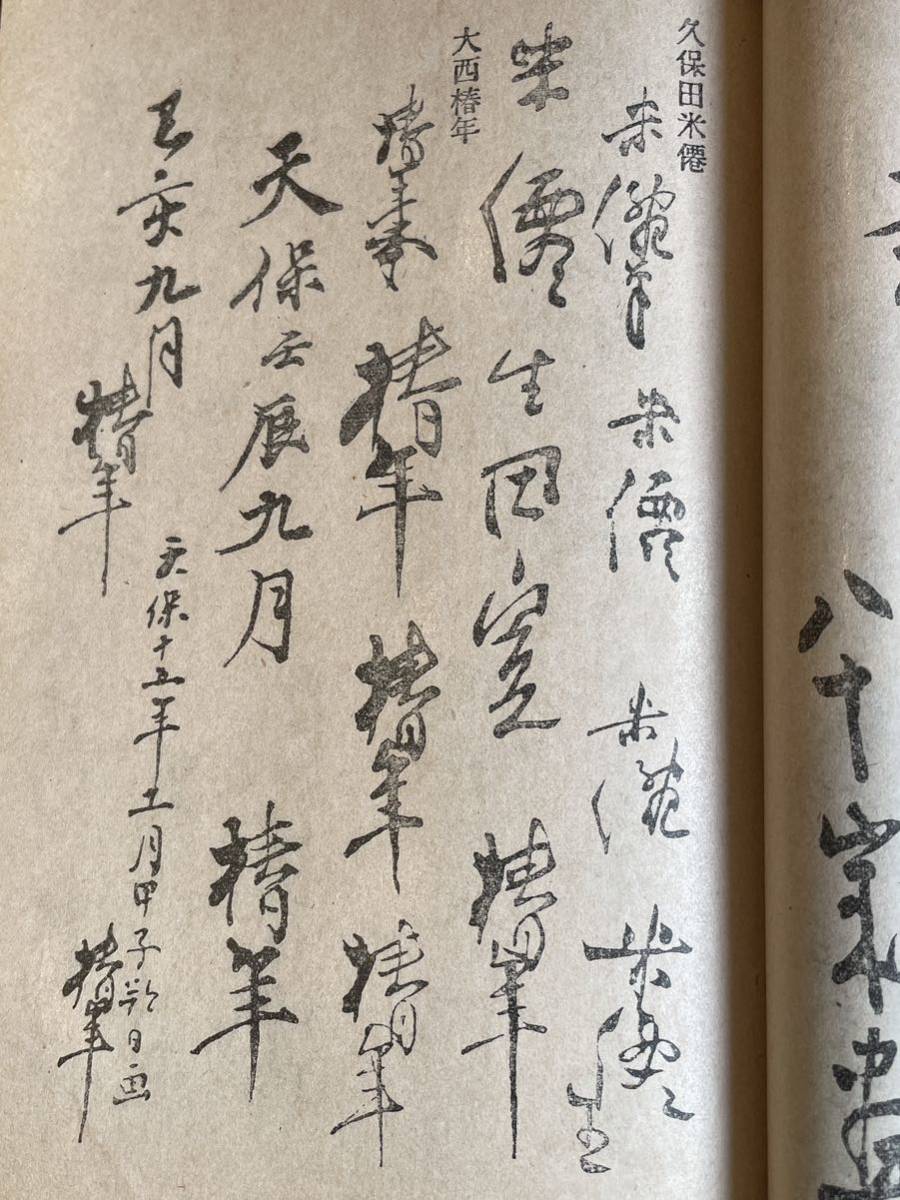 久保田米僊
米僊筆
米僊
米僊
米僊生
米僊生田寛
大西椿年
椿年
椿年
椿年
椿年
椿年
天保壬辰九月
椿年
己亥九月
椿年
天保十五年十一月甲子 日画
椿年
八十